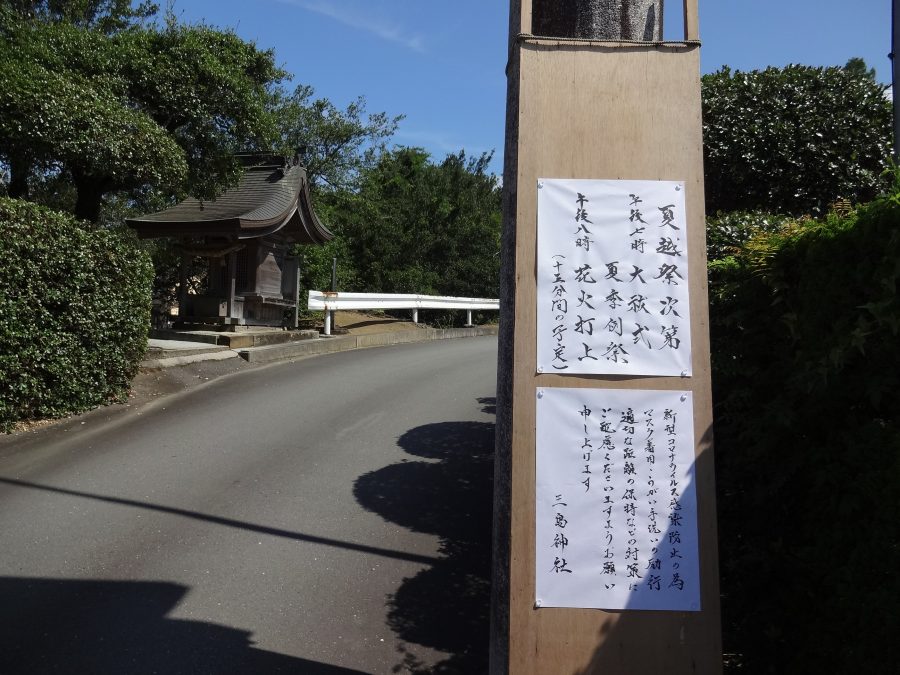 夏越祭次第
午後七時 大祓式
夏季例祭
午後八時 花火打上
(十五分間の予定)
新型コロナウイルス感染防止の為
マスク着用・うがい手洗いの励行
適切な距離の保持などの対策に
ご配慮くださいますようお願い
申し上げます
三島神社